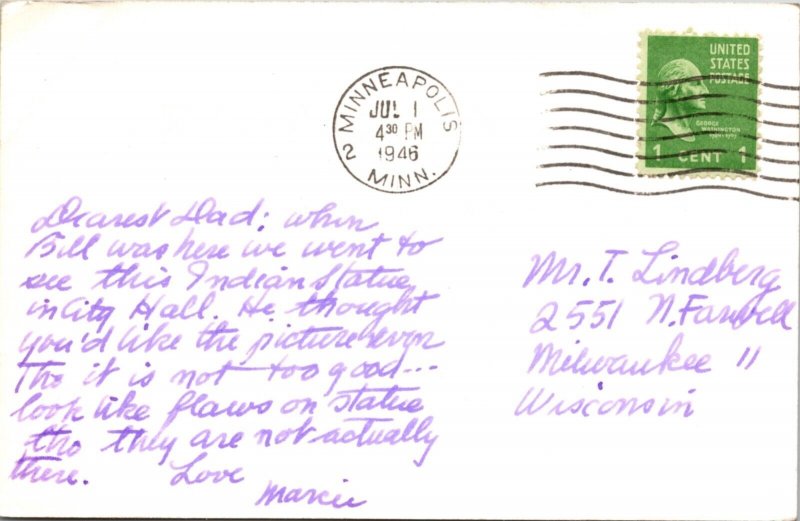 MINNEAPOLIS
JUL 1
4 30 PM
1946
2 MINN.
UNITED
STATES
POSTAGE
GEORGE
WASHINGTON
1 CENT 1
Dearest Dad: when
Bill was here we went to
see this Indian Statue
in City Hall. He thought
you'd like the picture even
tho it is not too good...
look like flaws on statue
tho they are not actually
there. Love
Marcie
Mr. T. Lindberg
2551 N. Farwell
Milwaukee 11
Wisconsin